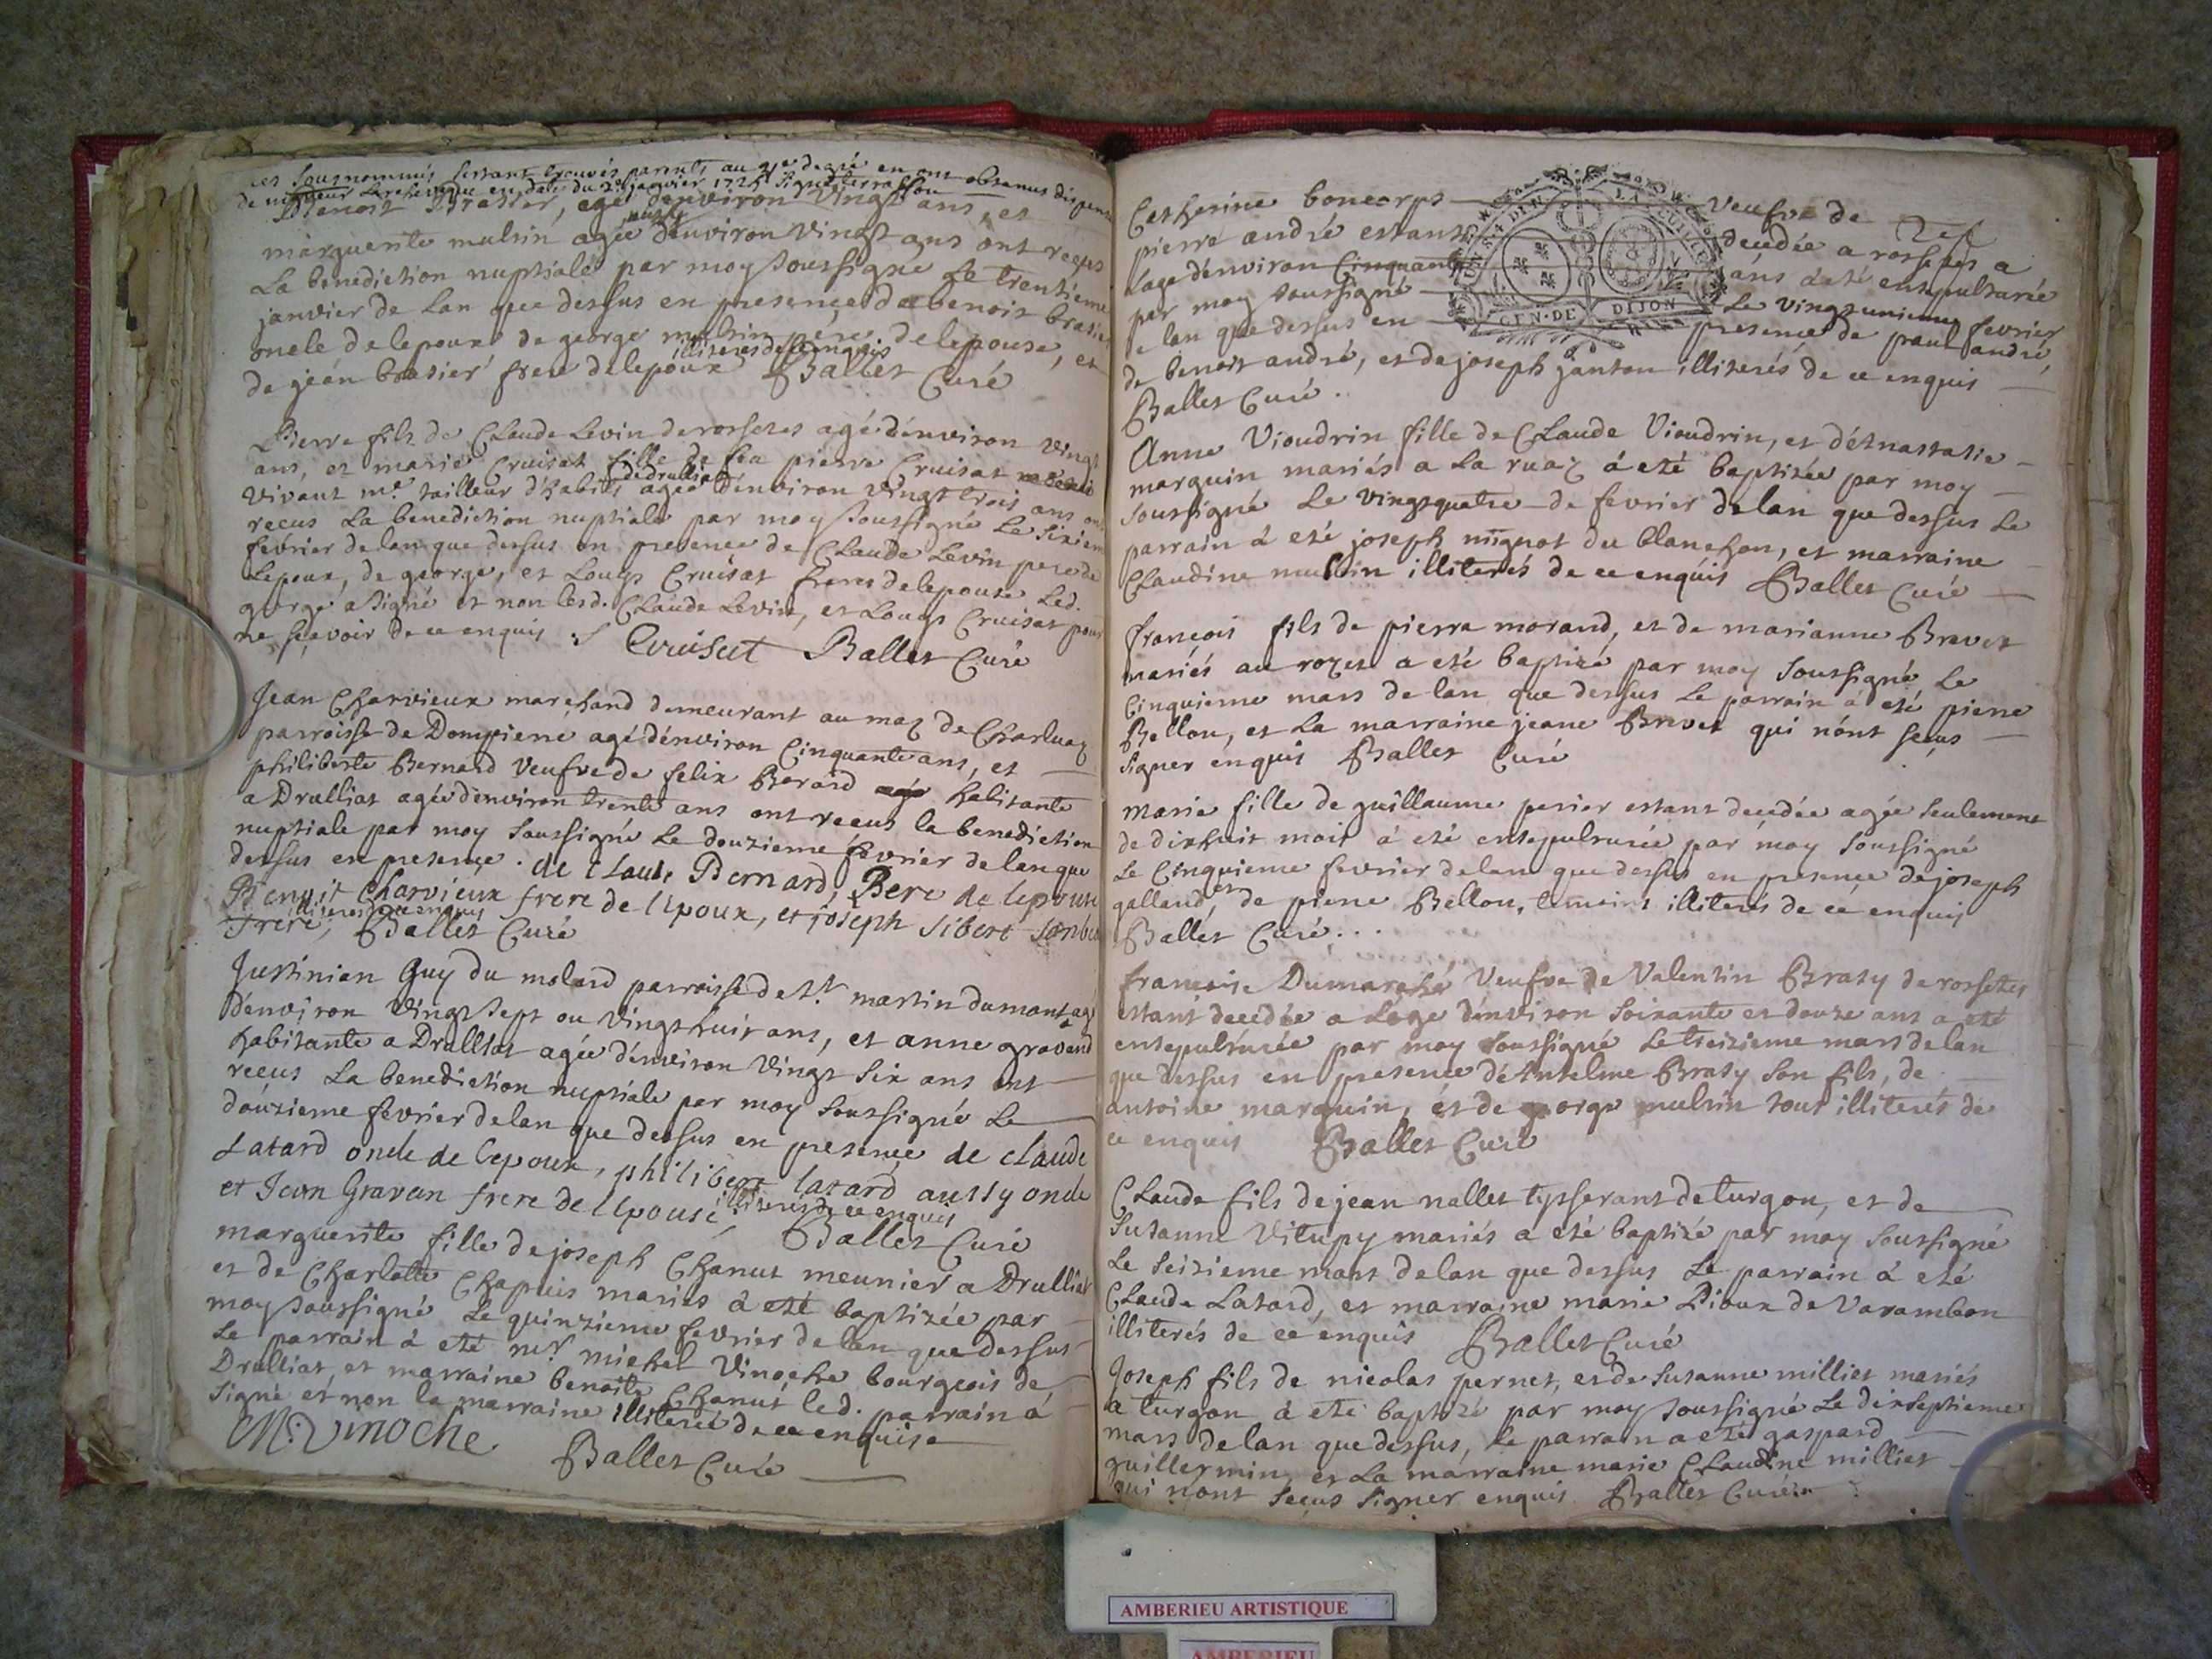 ces sousnommés s'estant trouvés parents au 4e degré en ont obtenus dispense
de l'archeveque en date du janvier 1724 signé terrasson
Benoist Brasier, agé d'environ vingt ans, et
marguerite mulsin agée aussy d'environ vingt ans ont receus
La benediction nuptiale par moy soussigné Le trentieme
janvier de Lan que dessus en presence de benoist brasier
oncle de lepoux de george mulsin pere de lepouse, et
de jean brasier frere de lepoux illiterés de ce enquis Ballet Curé
Pierre fils de Claude Levin de rossetes agé d'environ vingt
ans, et marie Cruisat fille de feu pierre Cruisat
vivant me. tailleur d'habits de drulliat agée d'environ vingt trois ans ont
receus La benediction nuptiale par moy soussigné Le sixieme
fevrier de lan que dessus en presence de Claude Levin pere de
Lepoux, de george, et Louys Cruisat freres de lepouse Led.
george a signé et non lesd. Claude Levin, et Louys Cruisat pour
ne sçavoir de ce enquis Cruisat Ballet Curé
Jean Charvieux marchand demeurant au maz de Charluaz
parroisse de Dompierre agé d'environ Cinquante ans, et
philiberte Bernard veufve de felix Berard habitante
a Drulliat agée d'environ trente ans ont receus la benediction
nuptiale par moy soussigné Le douzieme fevrier de lan que
dessus en presence. de Claude Bernard, Pere de lepouse
Benoit Charvieux frere de lepoux, et joseph Sibert son beau
frere, illiterés de ce enquis Ballet Curé
Justinien Guy du molard parroisse de St. martin du mont agé
d'environ vingt sept ou vingt huit ans, et anne gravand
habitante a Drulliat agée d'environ vingt six ans ont
receus La benediction nuptiale par moy soussigné Le
douzieme fevrier de lan que dessus en presence de claude
Latard oncle de lepoux, philibert latard aussy oncle
et Jean Gravan frere de lepouse, illiterés de ce enquis Ballet Curé
marguerite fille de joseph Chanut meunier a Drulliat
et de Charlotte Chapuis mariés á eté baptizée par
moy soussigné Le quinzieme fevrier de lan que dessus
Le parrain á eté mr. michel Vinoche bourgeois de
Drulliat, et marraine benoite Chanut led. parrain á
signé et non la marraine illiterée de ce enquise
M: Vinoche Ballet Curé
Catherine boncorps veufve de
pierre andré estant decedée a rossetes a
lage d'environ Cinquante ans á eté ensepulturée
par moy soussigné Le vingt unieme fevrier
de lan que dessus en presence de paul andré,
de benoit andré, et de joseph janton illiterés de ce enquis
Ballet Curé.
GEN·DE DIJON
Anne Vioudrin fille de Claude Vioudrin, et d'Etnastasie
marguin mariés a La ruaz á eté baptizée par moy
soussigné Le vingt quatre de fevrier de lan que dessus Le
parrain á eté joseph mignot du blanchon, et marraine
Claudine mulsin illiterés de ce enquis Ballet Curé
françois fils de pierre morand, et de marianne Brevet
mariés au rozet a eté baptizé par moy soussigné Le
Cinquieme mars de lan que dessus Le parrain á eté pierre
Bellon, et La marraine jeane Brevet qui n'ont sçeus
signer enquis Ballet Curé
Marie fille de guillaume perier estant decedée agée seulement
de dixhuit mois á eté ensepulturée par moy soussigné
Le Cinquieme fevrier de lan que dessus en presence de joseph
galland, et de pierre Bellon, temoins illiterés de ce enquis
Ballet Curé...
françoise Dumarché veufve de Valentin Brasy de rossetes
estant decedée a Lage d'environ soixante et douze ans a eté
ensepulturée par moy soussigné Le treizieme mars de lan
que dessus en presence d'Antselme Brasy son fils, de
antoine marguin, et de george mulsin tous illiterés de
ce enquis Ballet Curé
Claude fils de jean nallet tysserant de turgon, et de
Susanne Vitupy mariés a eté baptizé par moy soussigné
Le seizieme mars de lan que dessus Le parrain á eté
Claude Latard, et marraine marie Pioux de Varambon
illiterés de ce enquis Ballet Curé
Joseph fils de nicolas pernet, et de Susanne milliet mariés
a turgon á eté baptizé par moy soussigné Le dixseptieme
mars de lan que dessus, Le parrain a eté gaspard
guillermin, et La marraine marie Claudine milliet
qui n'ont sçeus signer enquis Ballet Curé
AMBERIEU ARTISTIQUE
AMBERIEU